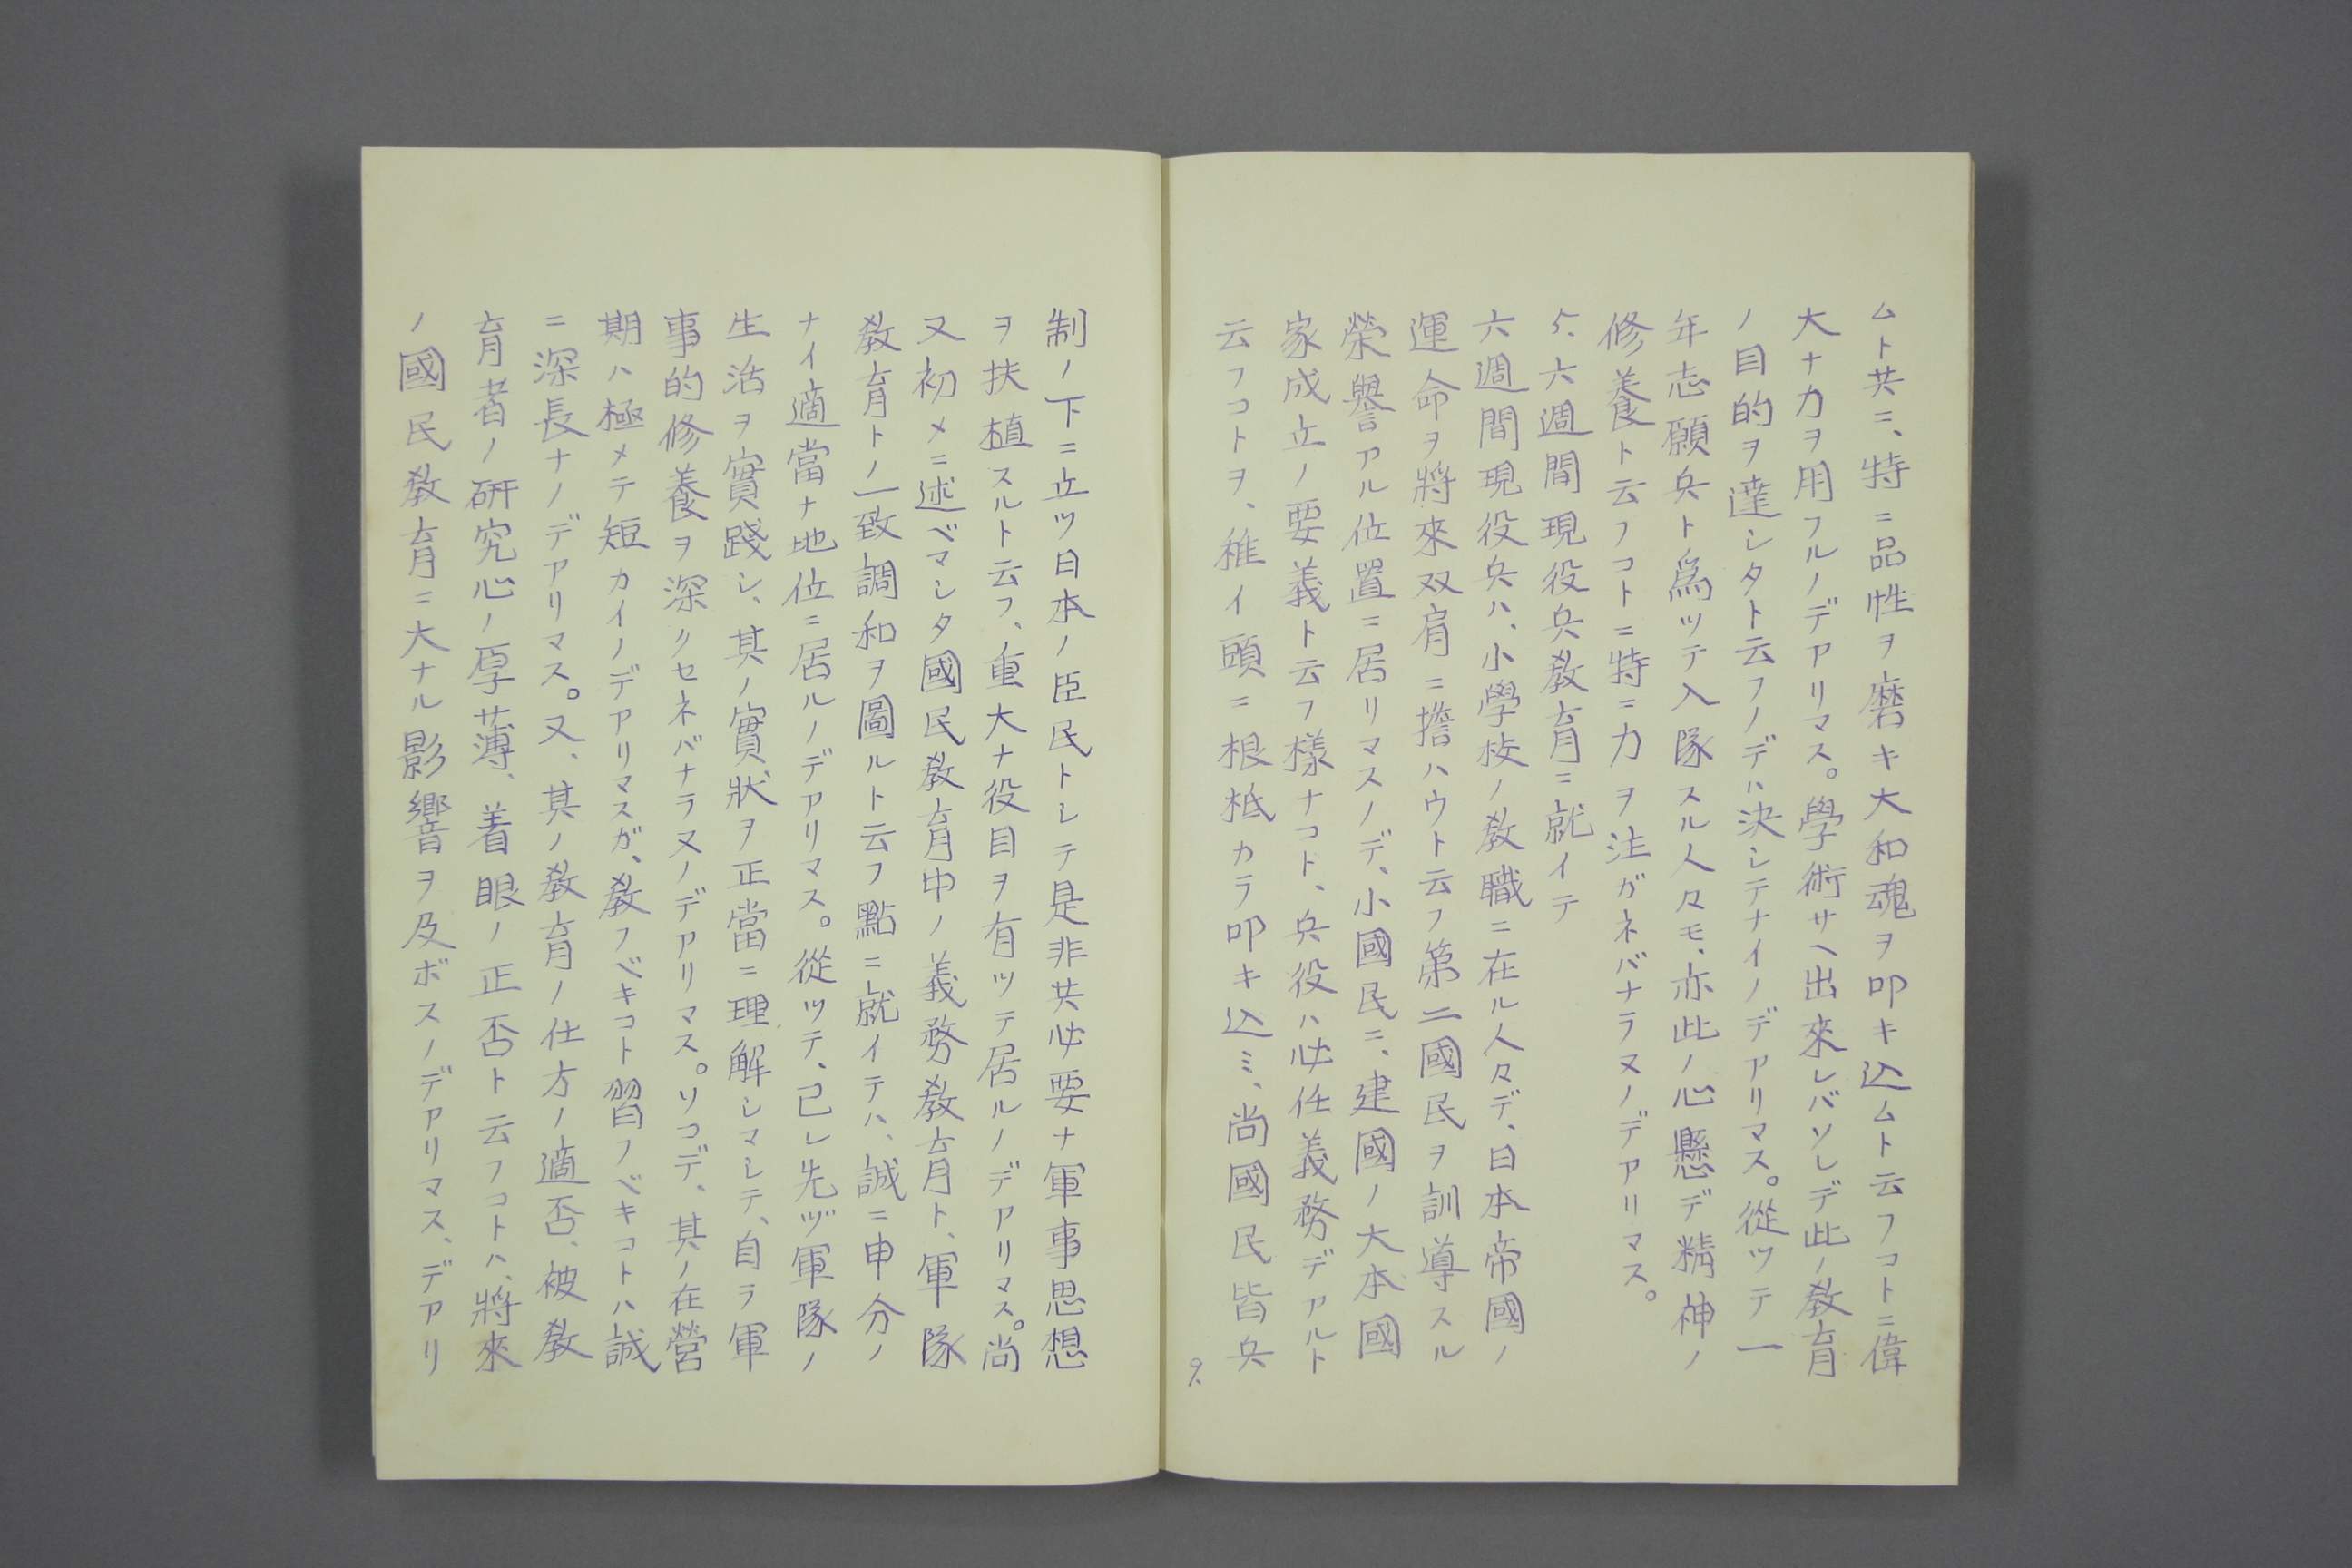 ムト共ニ、特ニ品性ヲ磨キ大和魂ヲ叩キ込ムト云フコトニ偉
大ナ力ヲ用フルノデアリマス。學術サヘ出來レバソレデ此ノ敎育
ノ目的ヲ達シタト云フノデハ決シテナイノデアリマス。從ツテ一
年志願兵ト爲ツテ入隊スル人々モ、亦此ノ心懸デ精神ノ
修養ト云フコトニ特ニ力ヲ注ガネバナラヌノデアリマス。
5、六週間現役兵敎育ニ就イテ
六週間現役兵ハ、小學校ノ敎職ニ在ル人々デ、日本帝國ノ
運命ヲ將來双肩ニ擔ハウト云フ第二國民ヲ訓導スル
榮譽アル位置ニ居リマスノデ、小國民ニ、建國ノ大本國
家成立ノ要義ト云フ樣ナコト、兵役ハ必任義務デアルト
云フコトヲ、稚イ頭ニ根柢カラ叩キ込ミ、尚國民皆兵
9.
制ノ下ニ立ツ日本ノ臣民トシテ是非共必要ナ軍事思想
ヲ扶植スルト云フ、重大ナ役目ヲ有ツテ居ルノデアリマス。尚
又初メニ述ベマシタ國民敎育中ノ義務敎育ト、軍隊
敎育トノ一致調和ヲ圖ルト云フ點ニ就イテハ、誠ニ申分ノ
ナイ適當ナ地位ニ居ルノデアリマス。從ツテ、己レ先ヅ軍隊ノ
生活ヲ實踐シ、其ノ實狀ヲ正當ニ理解シマシテ、自ラ軍
事的修養ヲ深クセネバナラヌノデアリマス。ソコデ、其ノ在營
期ハ極メテ短カイノデアリマスガ、敎フベキコト習フベキコトハ誠
ニ深長ナノデアリマス。又、其ノ敎育ノ仕方ノ適否、被敎
育者ノ硏究心ノ厚薄、着眼ノ正否ト云フコトハ、將來
ノ國民敎育ニ大ナル影響ヲ及ボスノデアリマス、デアリ